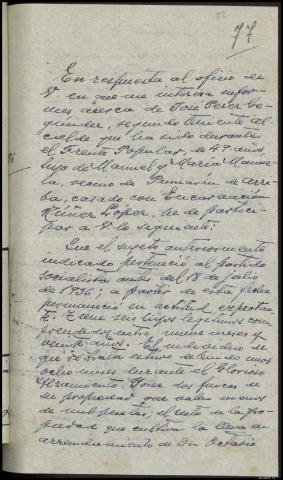 77
En respuesta al oficio de
V. en que me interesa infor-
mes acerca de José Perez Be-
segundo teniente al-
calde que ha sido durante
el Frente Popular, de 47 años
hijo de Manuel y María Manue-
la, vecino de de arri-
ba, casado con Encarnación
López, he de partici-
par a V. lo siguiente:
Que el sujeto anteriormente
indicado perteneció al partido
socialista antes del 18 de julio
de 1936; a partir de esta fecha
permaneció en actitud expectan-
te. Tiene seis hijos legítimos com-
prendidos entre nueve meses y
veinte años. El individuo de
que se trata estuvo de unos
ocho meses durante el Glorioso
Alzamiento. Posee dos fincas de
su propiedad que valen menos
de mil pesetas; el resto de la pro-
piedad que cultiva la lleva en
arrendamiento de Dn Octavio